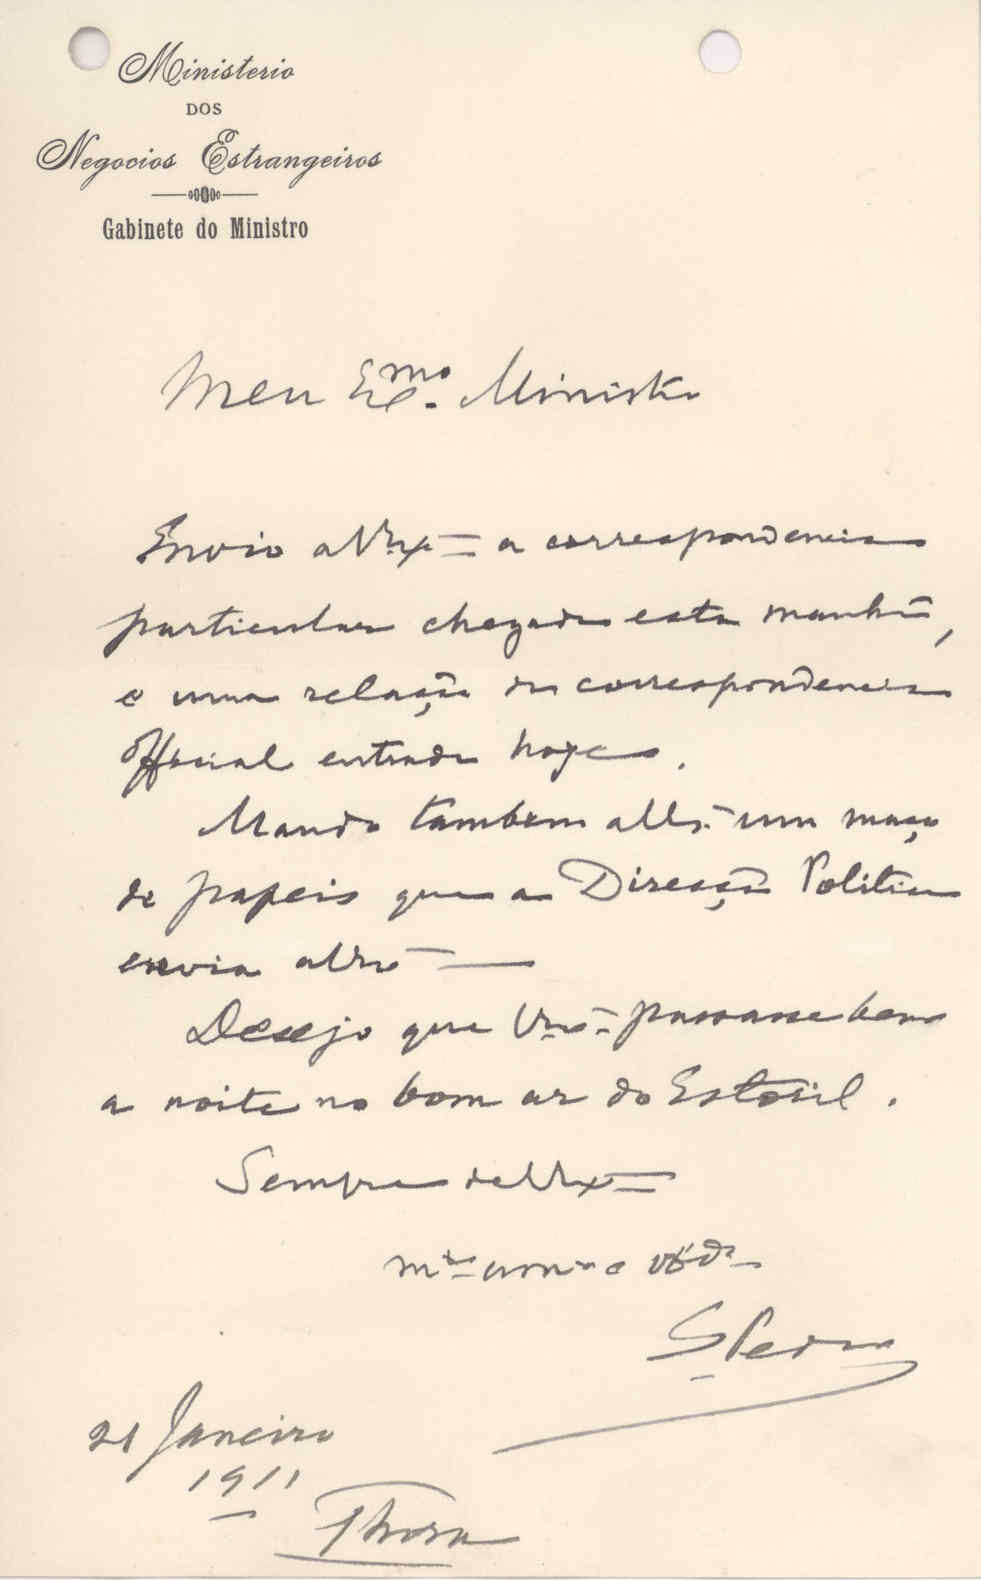 Ministerio
DOS
Negocios Estrangeiros
Gabinete do Ministro
Meu Exmo. Ministro
Envio a V. Ex.ª a correspondencia
particular chegada esta manhã,
e uma relação da correspondencia
official entrada hoje.
Mando tambem a V. Ex.ª um maço
de papeis que a Direcção Politica
envia a V. Ex.ª
Desejo que V. Ex.ª passasse bem
a noite no bom ar do Estoril.
Sempre de V. Ex.ª
m.to am.o e
S. Pedro
21 Janeiro
1911
1 hora